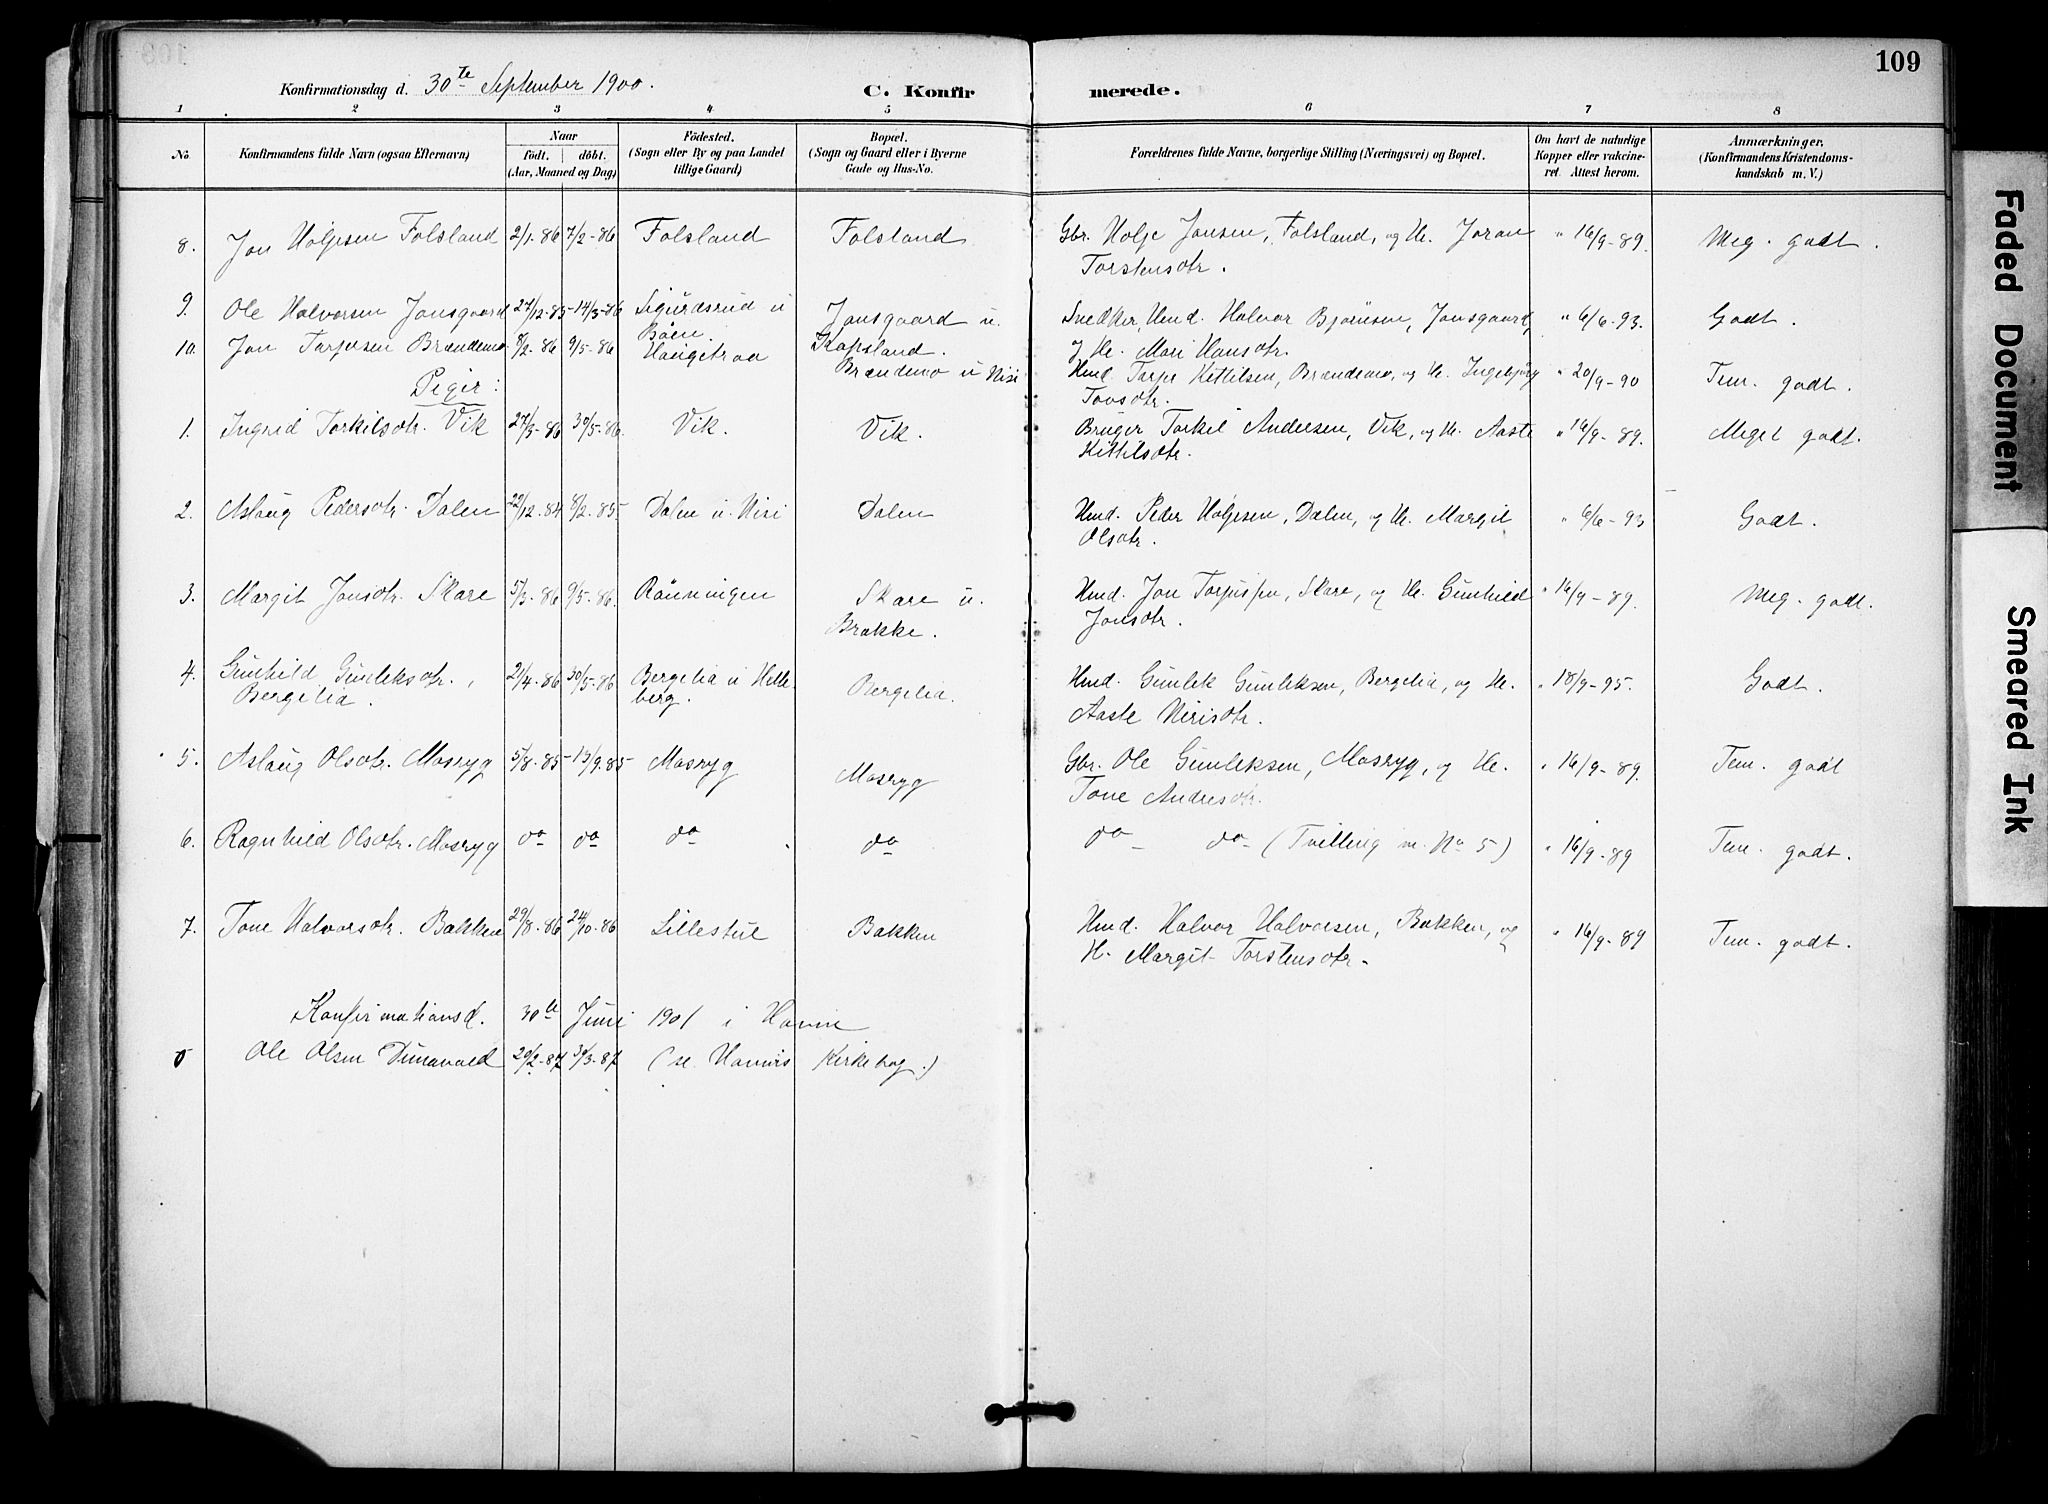 109
Konfirmationsdag d. 30te September 1900.
C. Konfirmerede.
1 2 3 4 5 6 7 8
No.
Konfirmandens fulde Navn (ogsaa Efternavn)
Naar
født. døbt.
(Aar, Maaned og Dag)
Fødested.
(Sogn eller By og paa Landet
tillige Gaard)
Bopæl.
(Sogn og Gaard eller i Byerne
Gade og Hus-No.
Forældrenes fulde Navne, borgerlige Stilling (Næringsvei) og Bopæl.
Om havt de naturlige
Kopper eller vakcine-
ret. Attest herom.
Anmærkninger.
(Konfirmandens Kristendoms-
kundskab m. V.)
8. Jon Holjesen Folsland 2/1-86 7/2-86 Folsland Folsland Gbr. Holje Jonsen, Folsland, og H. Joran " 16/9-89. Meg. godt.
Torstensdtr.
9. Ole Halvorsen Jonsgaard 27/12-85 14/3-86 Sigurdsrud u Jonsgaard u. Snedker, Hmd. Halvor Bjørnsen, Jonsgaard, " 6/6-93. Godt.
Bøen. Grapsland. og H. Mari Hansdtr.
10. Jon Torjusen Brændemo 8/2-86 9/5-86 Haugetraa Brændemo u Nisi Hmd. Torje Kittilsen, Brændemo, og H. Ingebjørg " 20/9-90 Tem. godt.
Tovsdtr.
Piger:
1. Ingrid Torkilsdtr. Vik 27/3-86 30/5-86. Vik. Vik. Bruger Torkil Andersen, Vik, og H. Aaste " 16/9-89. Meget godt.
Kittilsdtr.
2. Aslaug Pedersdtr. Dalen 22/12-84 8/2-85 Dalen u. Nisi Dalen Hmd. Peder Holjesen, Dalen, og H. Margit " 6/6-93 Godt.
Olsdtr.
3. Margit Jonsdtr. Skare 5/3-86 9/5-86. Rønningen Skare u. Hmd. Jon Torjussen, Skare, og H. Gunhild " 16/9-89. Meg. godt.
Brække. Jonsdtr.
4. Gunhild Gunleksdtr. 2/4-86 30/5-86 Bergelia u Helle- Bergelia. Hmd. Gunlek Gunleksen, Bergelia, og H. " 18/9-95. Godt.
Bergelia. berg. Aaste Nirisdtr.
5. Aslaug Olsdtr. Mosryg 5/8-85 13/9-85 Mosryg Mosryg Gbr. Ole Gunleksen, Mosryg, og H. " 16/9-89. Tem. godt
Tone Andresdtr.
6. Ragnhild Olsdtr. Mosryg do do do do do - do - (Tvilling m. No 5) " 16/9-89 Tem. godt.
7. Tone Halvorsdtr. Bakken 29/8-86 24/10-86 Lillestul Bakken Hmd. Halvor Halvorsen, Bakken, og " 16/9-89 Tem. godt.
H. Margit Torstensdtr.
Konfirmationsd. 30te Juni 1901 i Hovin
Ole Olsen Dunavold 20/2-87 30/3-87 (se Hovins Kirkebog.)
Faded Document
Smeared Ink